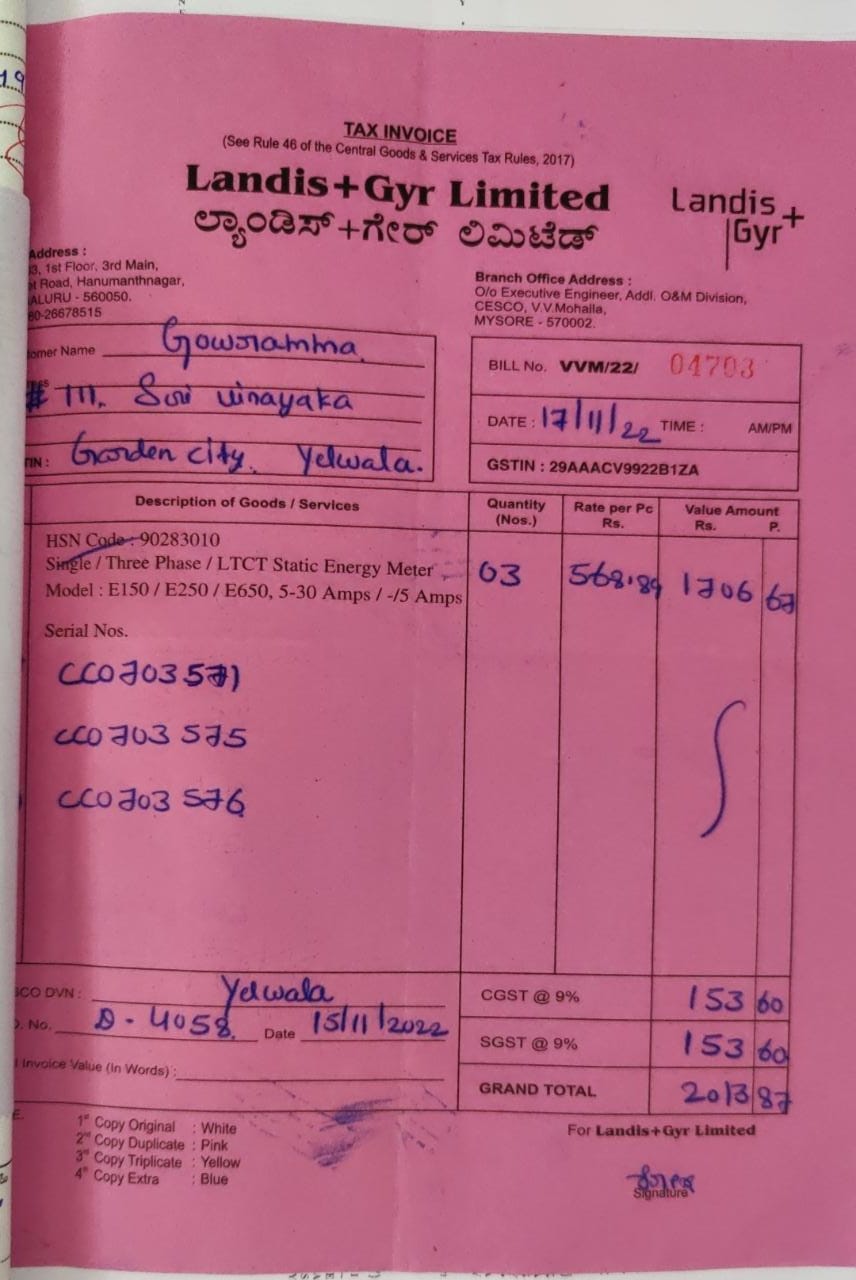 19
TAX INVOICE
(See Rule 46 of the Central Goods & Services Tax Rules, 2017)
Landis+Gyr Limited
ಲ್ಯಾಂಡಿಸ್+ಗೇರ್ ಲಿಮಿಟೆಡ್
Landis+
Gyr
Address :
3, 1st Floor, 3rd Main,
t Road, Hanumanthnagar,
ALURU - 560050.
80-26678515
Branch Office Address :
O/o Executive Engineer, Addl. O&M Division,
CESCO, V.V.Mohalla,
MYSORE - 570002.
omer Name Gowramma
# 111, Sri Vinayaka
TIN : Garden city. Yelwala.
BILL No. VVM/22/ 04703
DATE : 17/11/22 TIME : AM/PM
GSTIN : 29AAACV9922B1ZA
Description of Goods / Services Quantity (Nos.) Rate per Pc Rs. Value Amount Rs. P.
HSN Code : 90283010
Single / Three Phase / LTCT Static Energy Meter 03 568.89 1706 67
Model : E150 / E250 / E650, 5-30 Amps / -/5 Amps
Serial Nos.
CC0703571
CC0703575
CC0703576
SCO DVN : Yelwala
CGST @ 9% 153 60
. No. D - 4058 Date 15/11/2022
SGST @ 9% 153 60
l Invoice Value (In Words) :
GRAND TOTAL 2013 87
E.
1st Copy Original : White
2nd Copy Duplicate : Pink
3rd Copy Triplicate : Yellow
4th Copy Extra : Blue
For Landis+Gyr Limited
Signature